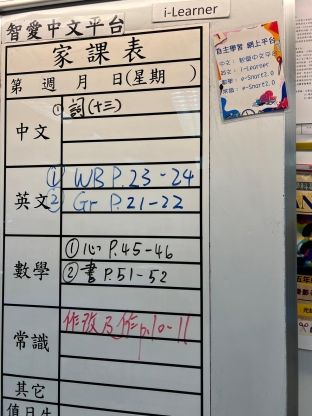 i-Learner
智愛中文平台
家課表
第 週 月 日(星期 )
中文
① 詞(十三)
英文
① WB P.23-24
② Gr P.21-22
數學
① 心 P.45-46
② 書 P.51-52
常識
作改及作p.10-11
其它
值日生
自主學習 網上平台
中文：智愛中文平台
英文：i-Learner
數學：e-Smart2.0
常識：e-Smart2.0